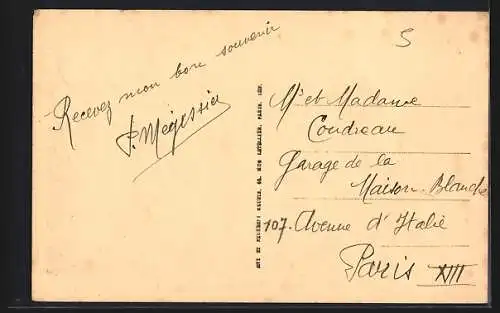 Recevez mon bon souvenir
5
Mr et Madame
Coudreau
Garage de la
Maison-Blanche
107. Avenue d'Italie
Paris XIII